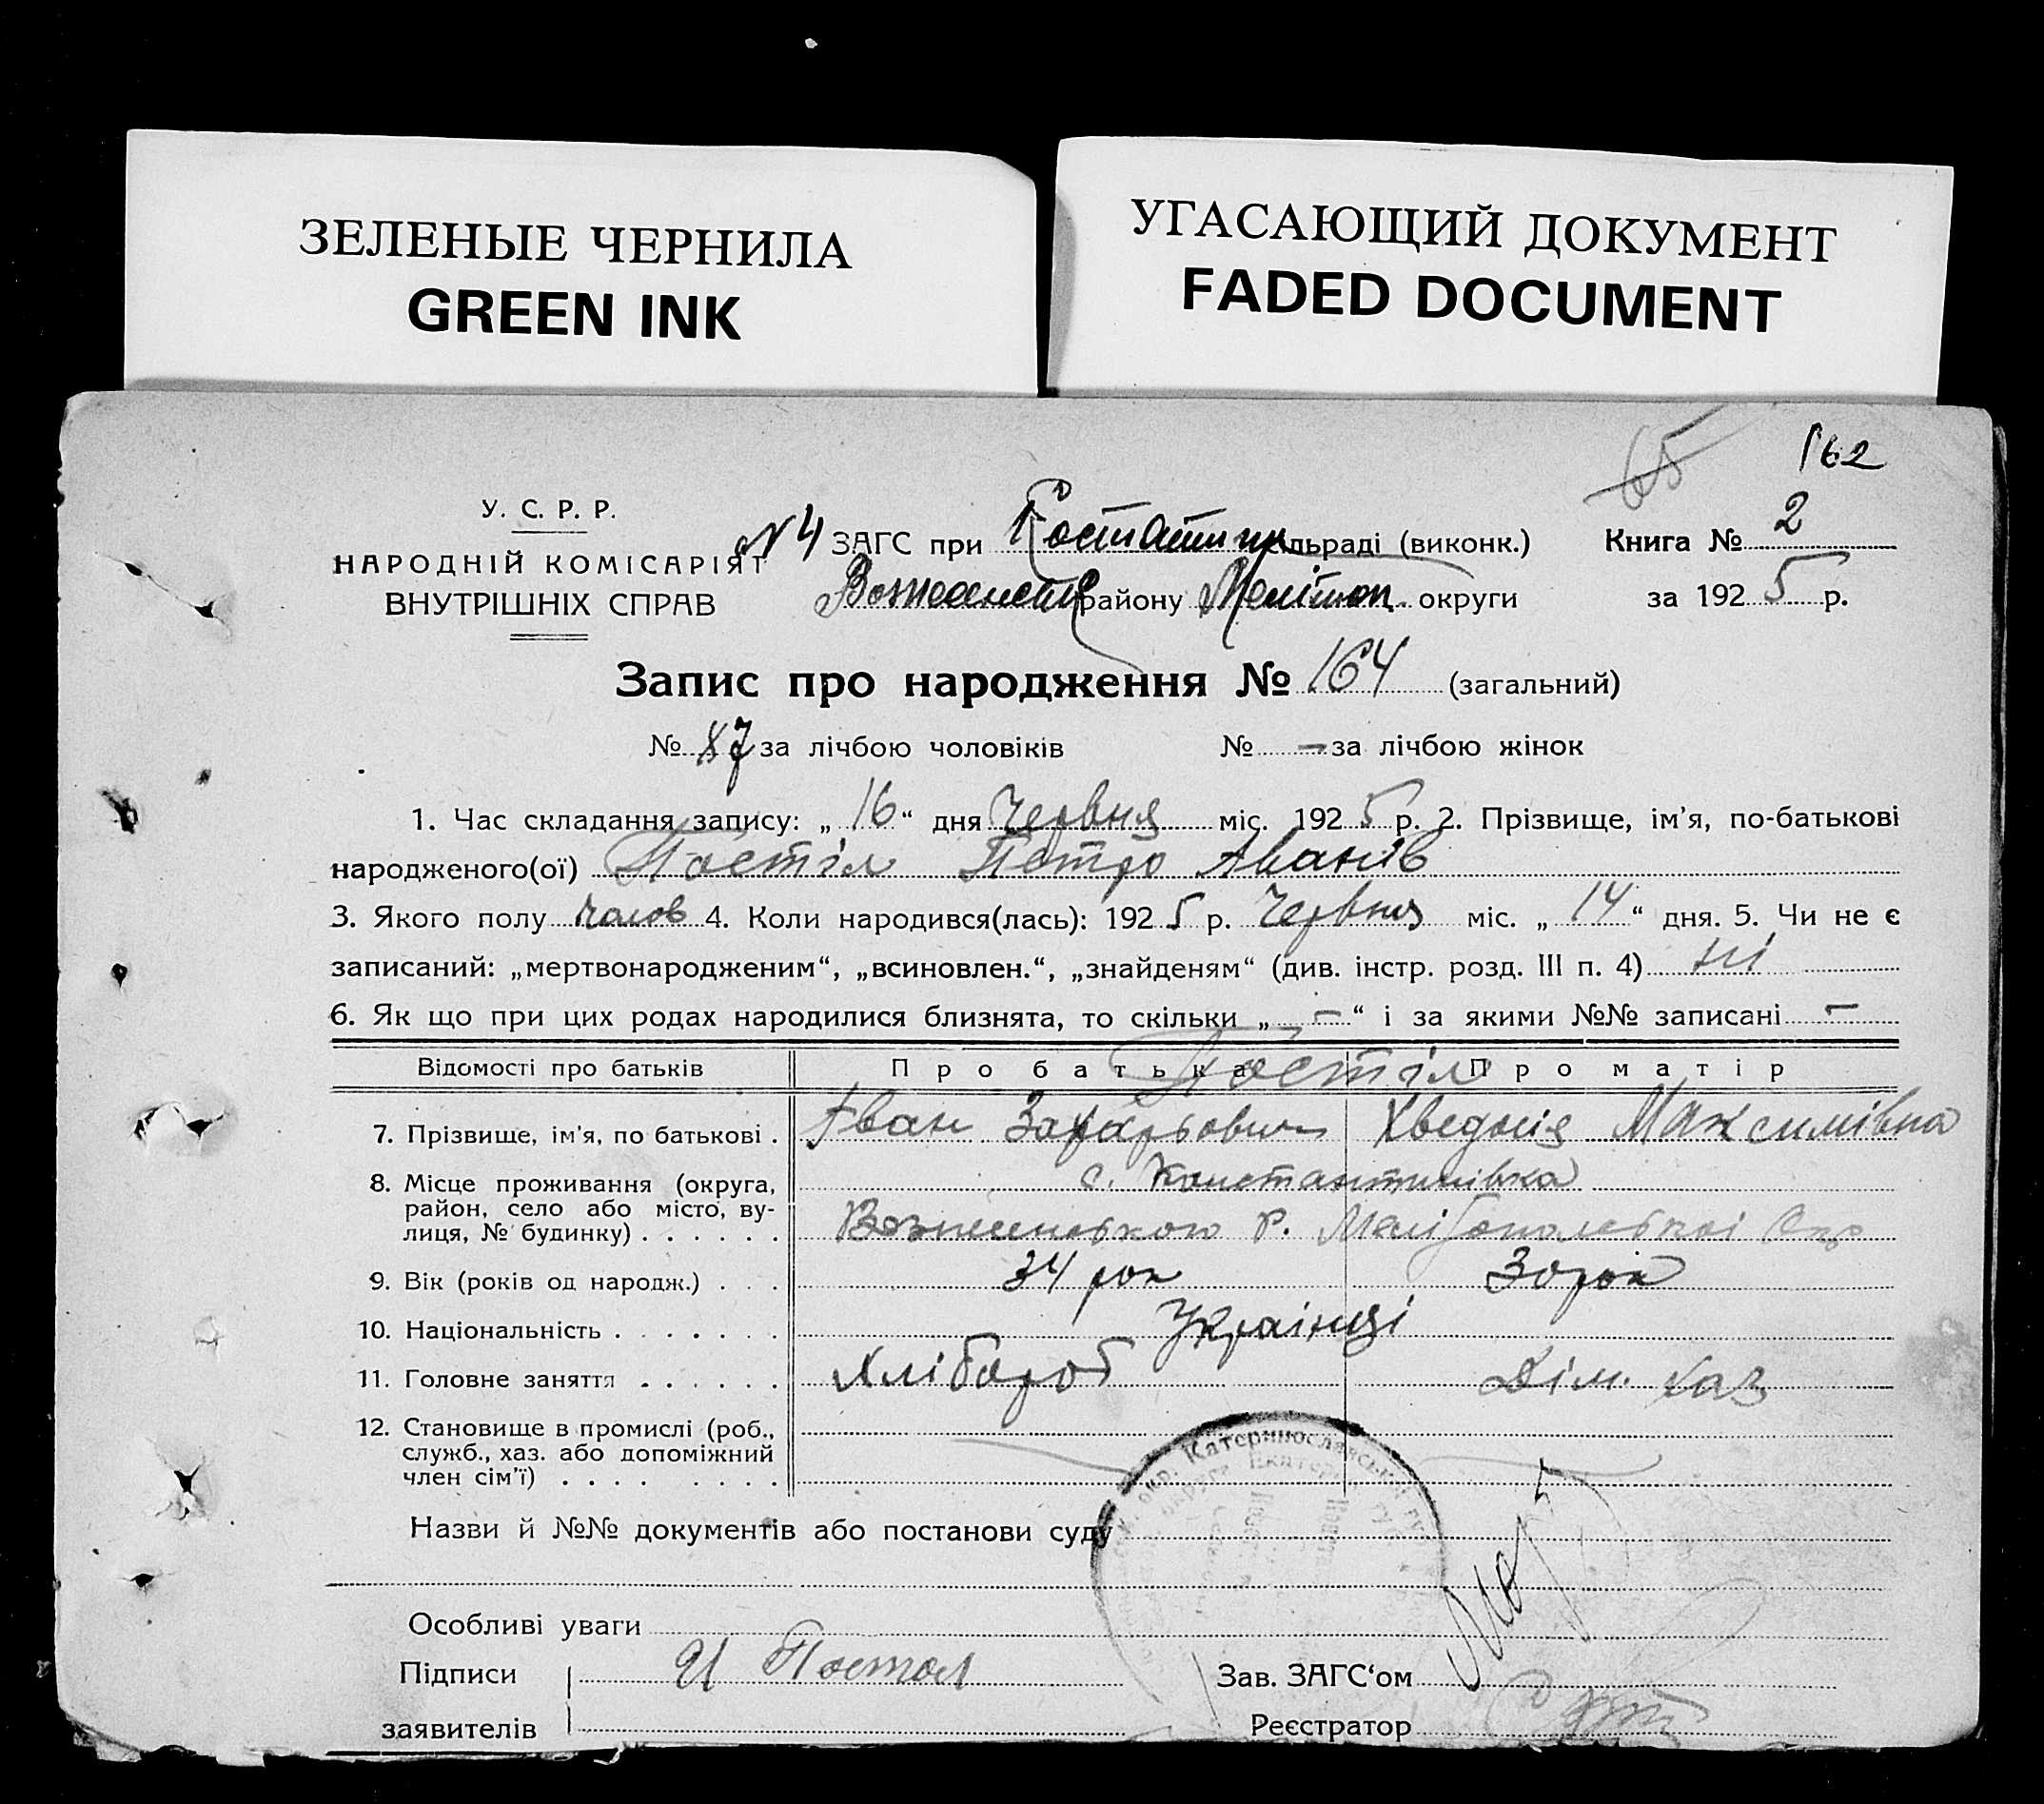 ЗЕЛЕНЫЕ ЧЕРНИЛА
GREEN INK
УГАСАЮЩИЙ ДОКУМЕНТ
FADED DOCUMENT
65 162
У. С. Р. Р.
НАРОДНІЙ КОМІСАРІЯТ
ВНУТРІШНІХ СПРАВ
№4 ЗАГС при сільраді (виконк.) Книга № 2
району Меліtoп. округи за 1925 р.
Запис про народження № 164 (загальний)
№ 87 за лічбою чоловіків № — за лічбою жінок
1. Час складання запису: „16“ дня Червня міс. 1925 р. 2. Прізвище, ім'я, по-батькові
народженого(ої) Постіл Петро Іванів
3. Якого полу чолов 4. Коли народився(лась): 1925 р. Червня міс. „14“ дня. 5. Чи не є
записаний: „мертвонародженим“, „всиновлен.“, „знайденям“ (див. інстр. розд. III п. 4) ні
6. Як що при цих родах народилися близнята, то скільки „—“ і за якими №№ записані —
Відомості про батьків Про батька Про матір
Постіл
7. Прізвище, ім'я, по батькові . Іван Захарьович Хведосія Максимівна
8. Місце проживання (округа, район, село або місто, ву-
лиця, № будинку) . . . . . .
с. Константинівка
р. Мелітопольскої Окр
9. Вік (років од народж.) . . . 34 рок 30 рок
10. Національність . . . . . . . Українці
11. Головне заняття . . . . . . Хлібороб Дім. хаз
12. Становище в промислі (роб.,
служб., хаз. або допоміжний
член сім'ї) . . . . . . . . .
окр. Катеринославськ
Назви й №№ документів або постанови суду
Особливі уваги
Підписи И Постол Зав. ЗАГС‘ом
заявителів Реєстратор